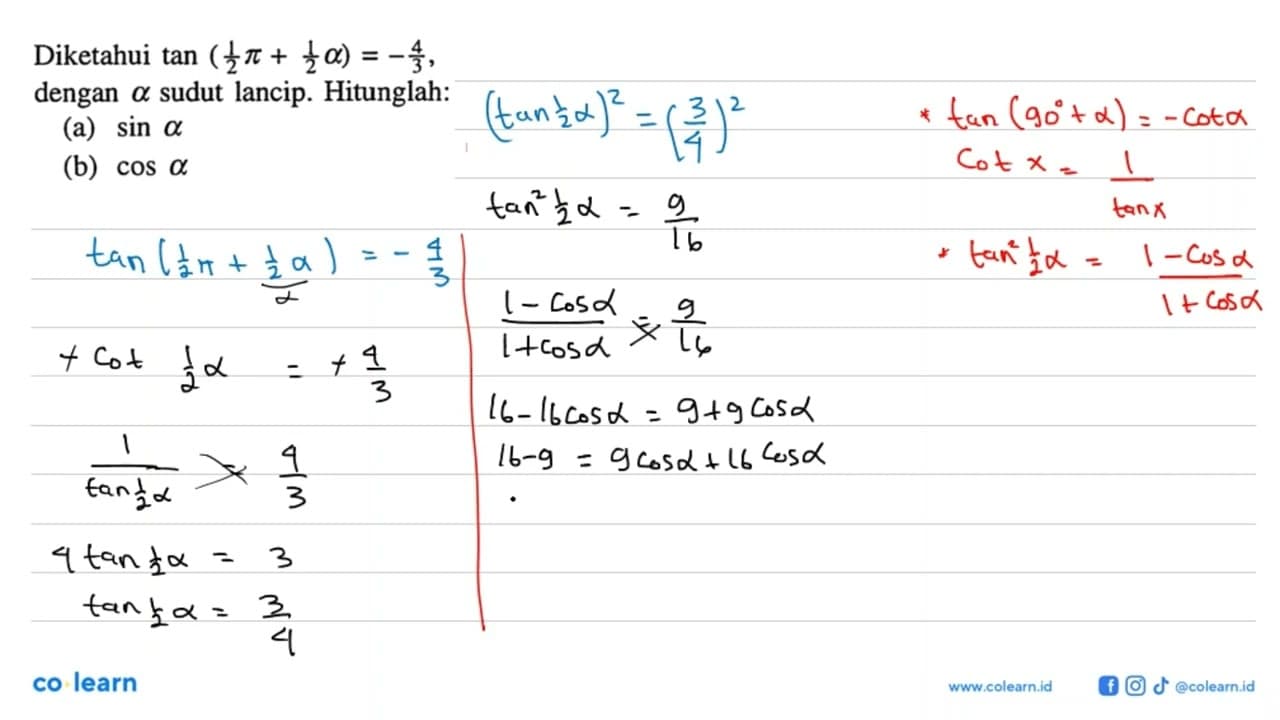 Diketahui tan (½π + ½α) = -4/3,
dengan α sudut lancip. Hitunglah:
(a) sin α
(b) cos α
tan (½π + ½α) = - 4/3
α
+ cot ½α = + 4/3
1/tan ½α = 4/3
4 tan ½α = 3
tan ½α = 3/4
(tan ½α)² = (3/4)²
tan² ½α = 9/16
1 - cosα / 1 + cosα = 9/16
16 - 16 cosα = 9 + 9 cosα
16 - 9 = 9 cosα + 16 cosα
* tan (90° + α) = - cotα
Cot x = 1/tan x
* tan² ½α = 1 - cosα / 1 + cosα
co learn
www.colearn.id
@colearn.id